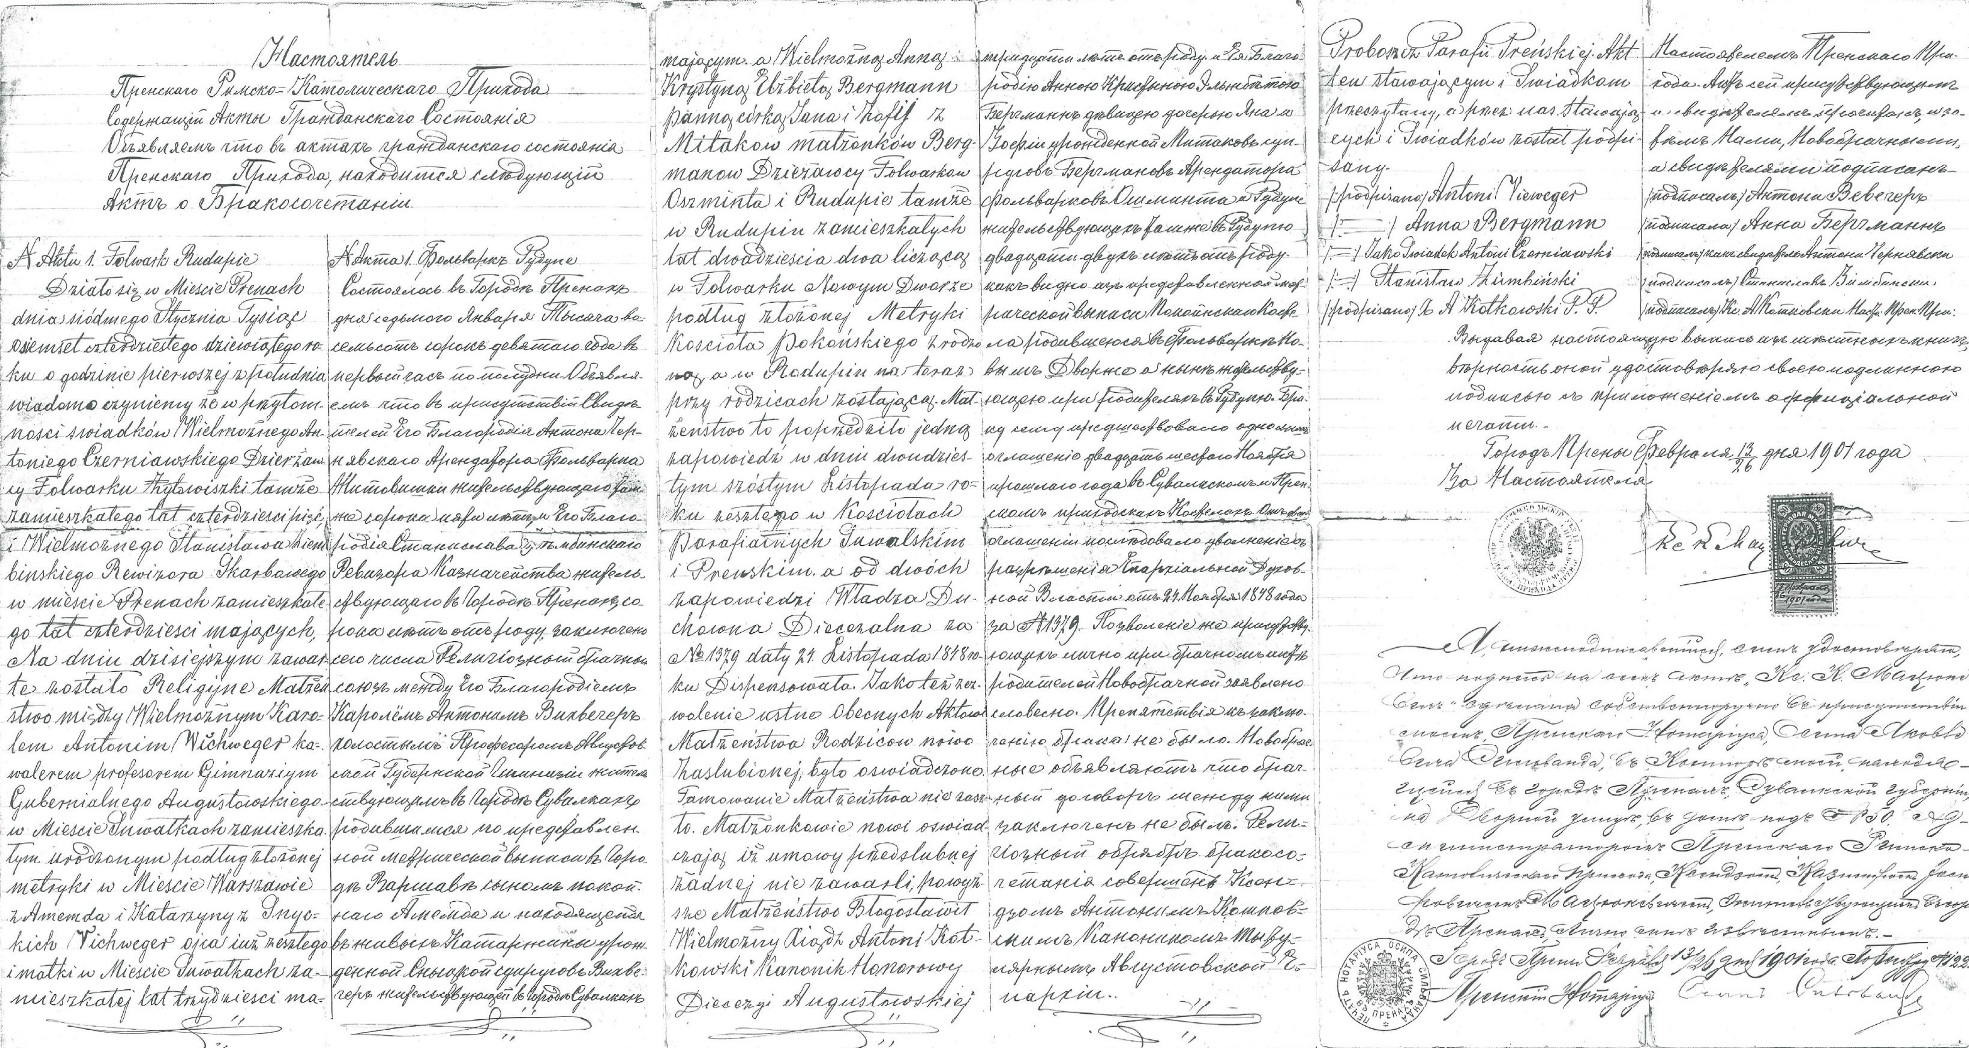 Настоятель
Пренскаго Римско-Католическаго Прихода
Содержащій Акты Гражданскаго Состоянія
Объявляемъ что въ актахъ гражданскаго состоянія
Пренскаго Прихода, находится слѣдующій
Актъ о Бракосочетаніи
N Aktu 1. Folwark Rudupie
Działo się w Mieście Prenach
dnia siódmego Stycznia Tysiąc
osiemset czterdziestego dziewiątego ro-
ku o godzinie pierwszej z południa
wiadomo czyniemy że w przytom-
ności świadków Wielmożnego An-
toniego Czerniawskiego Dzierżaw-
cy Folwarku Żytowiszki tamże
zamieszkałego lat czterdzieści pięć,
i Wielmożnego Stanisława Ziem-
bińskiego Rewizora Skarbowego
w mieście Prenach zamieszkałe-
go lat czterdzieści mających,
Na dniu dzisiejszym zawar-
te zostało Religijne Małżeń-
stwo między Wielmożnym Karo-
lem Antonim Wichweger ka-
walerem profesorem Gimnazium
Gubernialnego Augustowskiego
w Mieście Suwałkach zamieszka-
łym urodzonym podług złożonej
metryki w Mieście Warszawie
z Amemda i Katarzyny z Snyc-
kich Vichweger ojca już zeszłego
i matki w Mieście Suwałkach za-
mieszkałej lat trzydzieści ma-
N Акта 1. Фольваркъ Рудупе
Состоялось въ Городѣ Пренахъ
дня седьмого Января Тысяча во-
семьсотъ сорокъ девятаго года въ
первый часъ по полудни Объявля-
емъ что въ присутствіи Свидѣ-
телей Его Благородія Антона Чер-
нявскаго Арендатора Фольварка
Житовишки жительствующаго там-
же сорока пяти лѣтъ и Его Благо-
родія Станислава Зѣмбинскаго
Ревизора Казначейства житель-
ствующаго въ Городѣ Пренахъ со-
рока лѣтъ отъ роду, заключено
сего числа Религіозный брачный
союзъ между Его Благородіемъ
Каролемъ Антономъ Вихвегеръ
холостымъ Професоромъ Августов-
ской Губернской Гимназіи житель-
ствующимъ въ Городѣ Сувалкахъ
родившимся по представлен-
ной метрической выписи въ Горо-
дѣ Варшавѣ сыномъ покой-
наго Амемда и находящейся
въ живыхъ Катаржины урож-
денной Сныцкой супруговъ Вихве-
геръ жительствующей въ Городѣ Сувалкахъ
mającym. a Wielmożną Anną
Krystyną Elżbietą Bergmann
panną córką Jana i Zofii z
Mitaków małżonków Berg-
manow Dzierżawcy Folwarków
Oszminta i Rudupie tamże
w Rudupiu zamieszkałych
lat dwadzieścia dwa liczącą
w Folwarku Nowym Dworze
podług złożonej Metryki
Kościoła Pokońskiego zrodzo-
ną, a w Rudupiu na teraz
przy rodzicach zostającą. Mał-
żeństwo to poprzedziło jedną
zapowiedź w dniu dwudzies-
tym szóstym Listopada ro-
ku zeszłego w Kościołach
Parafialnych Suwalskim
i Prenskim. a od dwóch
zapowiedzi Władza Du-
chowna Diecezalna za
№ 1379 daty 24 Listopada 1848 ro-
ku Dispensowała. Jako też zez-
wolenie ustne Obecnych Aktowi
Małżeństwa Rodziców nowo
Zaslubionej, było oświadczono.
Tamowanie Małżeństwa nie zasz-
ło. Małżonkowie nowi oświad-
czają iż umowy przedślubnej
żadnej nie zawarli, powyż-
sze Małżeństwo Błogosławił
Wielmożny Xiądz Antoni Kot-
kowski Kanonik Honorowy
Diecezyi Augustowskiej
тридцати лѣтъ отъ роду и Ея Благо-
родію Анною Кристиною Эльжбетою
Бергманнъ дѣвицею дочерью Яна и
Зофіи урожденной Митаковъ суп-
руговъ Бергмановъ Арендатора
Фольварковъ Ошминта и Рудупе
жительствующихъ тамже въ Рудупю
двадцати двухъ лѣтъ отъ роду.
какъ видно изъ представленной мет-
рической выписи Покоинскаго Косте-
ла родившеюся въ Фольваркѣ Но-
вымъ Дворже а нынѣ жительству-
ющею при родителяхъ въ Рудупю. Бра-
ку сему предшествовало одно
оглашеніе двадцать шестого Ноября
прошлаго года въ Сувалкскомъ и Прен-
скомъ приходскихъ Костелахъ Отъ двухъ
оглашеній послѣдовало уволненіе съ
разрѣшенія Епархіальной Духов-
ной Власти отъ 24 Ноября 1848 года
за № 1379. Позволеніе же присутству-
ющихъ лично при брачномъ актѣ
родителей Новобрачной заявлено
словесно. Препятствія къ заклю-
ченію брака не было. Новобрач-
ные объявляютъ что брач-
ный договоръ между ними
заключенъ не былъ. Рели-
гіозный обрядъ бракосо-
четанія совершенъ Ксен-
дзомъ Антонимъ Котков-
скимъ Каноникомъ Титу-
лярнымъ Августовской Е-
пархіи..
Proboszcz Parafii Preńskiej. Akt
ten stawającym i Świadkom
przeczytany, a przez nas Stawają-
cych i Świadków został podpi-
sany.
/podpisano/ Antoni Vieweger
/—/ Anna Bergmann
/—/ Jako Świadek Antoni Czerniawski
/—/ Stanisław Ziembiński
/podpisano/ X A Kotkowski P. P.
Настоятелемъ Пренскаго При-
хода. Актъ сей присутствующимъ
и свидѣтелямъ прочитанъ, а за-
тѣмъ Нами, Новобрачными,
а свидѣтелями подписанъ
/подписалъ/ Антони Вевегеръ
/подписала/ Анна Бергманнъ
/подписалъ/ какъ свидѣтель Антони Чернявски
/подписалъ/ Станиславъ Зимбински
/подписалъ/ Кс. А Котковски Наст. Прен. При:
Выдавая настоящую выпись изъ метныхъ книгъ,
вѣрность оной удостовѣряю своею подлинною
подписью съ приложеніемъ оффиціальной
печати.-
Городъ Прены Февраля 13/26 дня 1901 года
За Настоятеля
1901 года
Я, нижеподписавшійся, симъ удостовѣряю,
что подпись на семъ актѣ, Кс. К. Мацке-
вичъ, сдѣлана собственноручно въ присутствіи
моемъ, Пренскаго Нотаріуса, Осипа Яковле-
вича Сильванда, въ Конторѣ моей, находя-
щейся въ городѣ Пренахъ, Сувалкской губерніи,
на Дворной улицѣ, въ домѣ подъ № 50, Ад-
министраторомъ Пренскаго Римско-
Католическаго прихода, Ксендзомъ, Казиміромъ
Мацкевичемъ, жительствующимъ въ горо-
дѣ Пренахъ, лично мнѣ извѣстнымъ.-
Городъ Прены Февраля 13/26 дня 1901 года По реестру № 122.
Пренскій Нотаріусъ
ПЕЧАТЬ НОТАРІУСА ОСИПА СИЛЬВАНДА